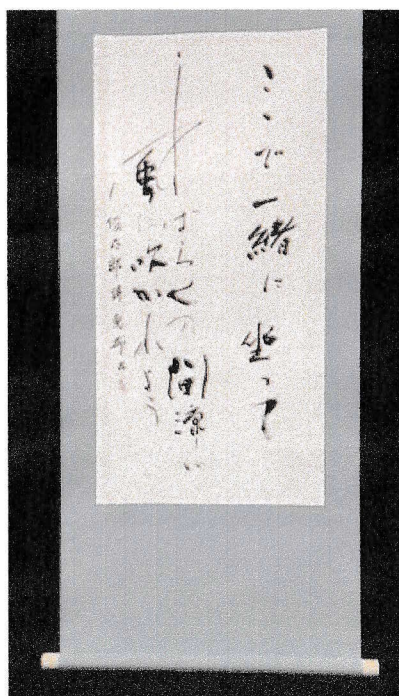 ここで一緒に坐って
しばらくの間涼い
風に吹かれよう